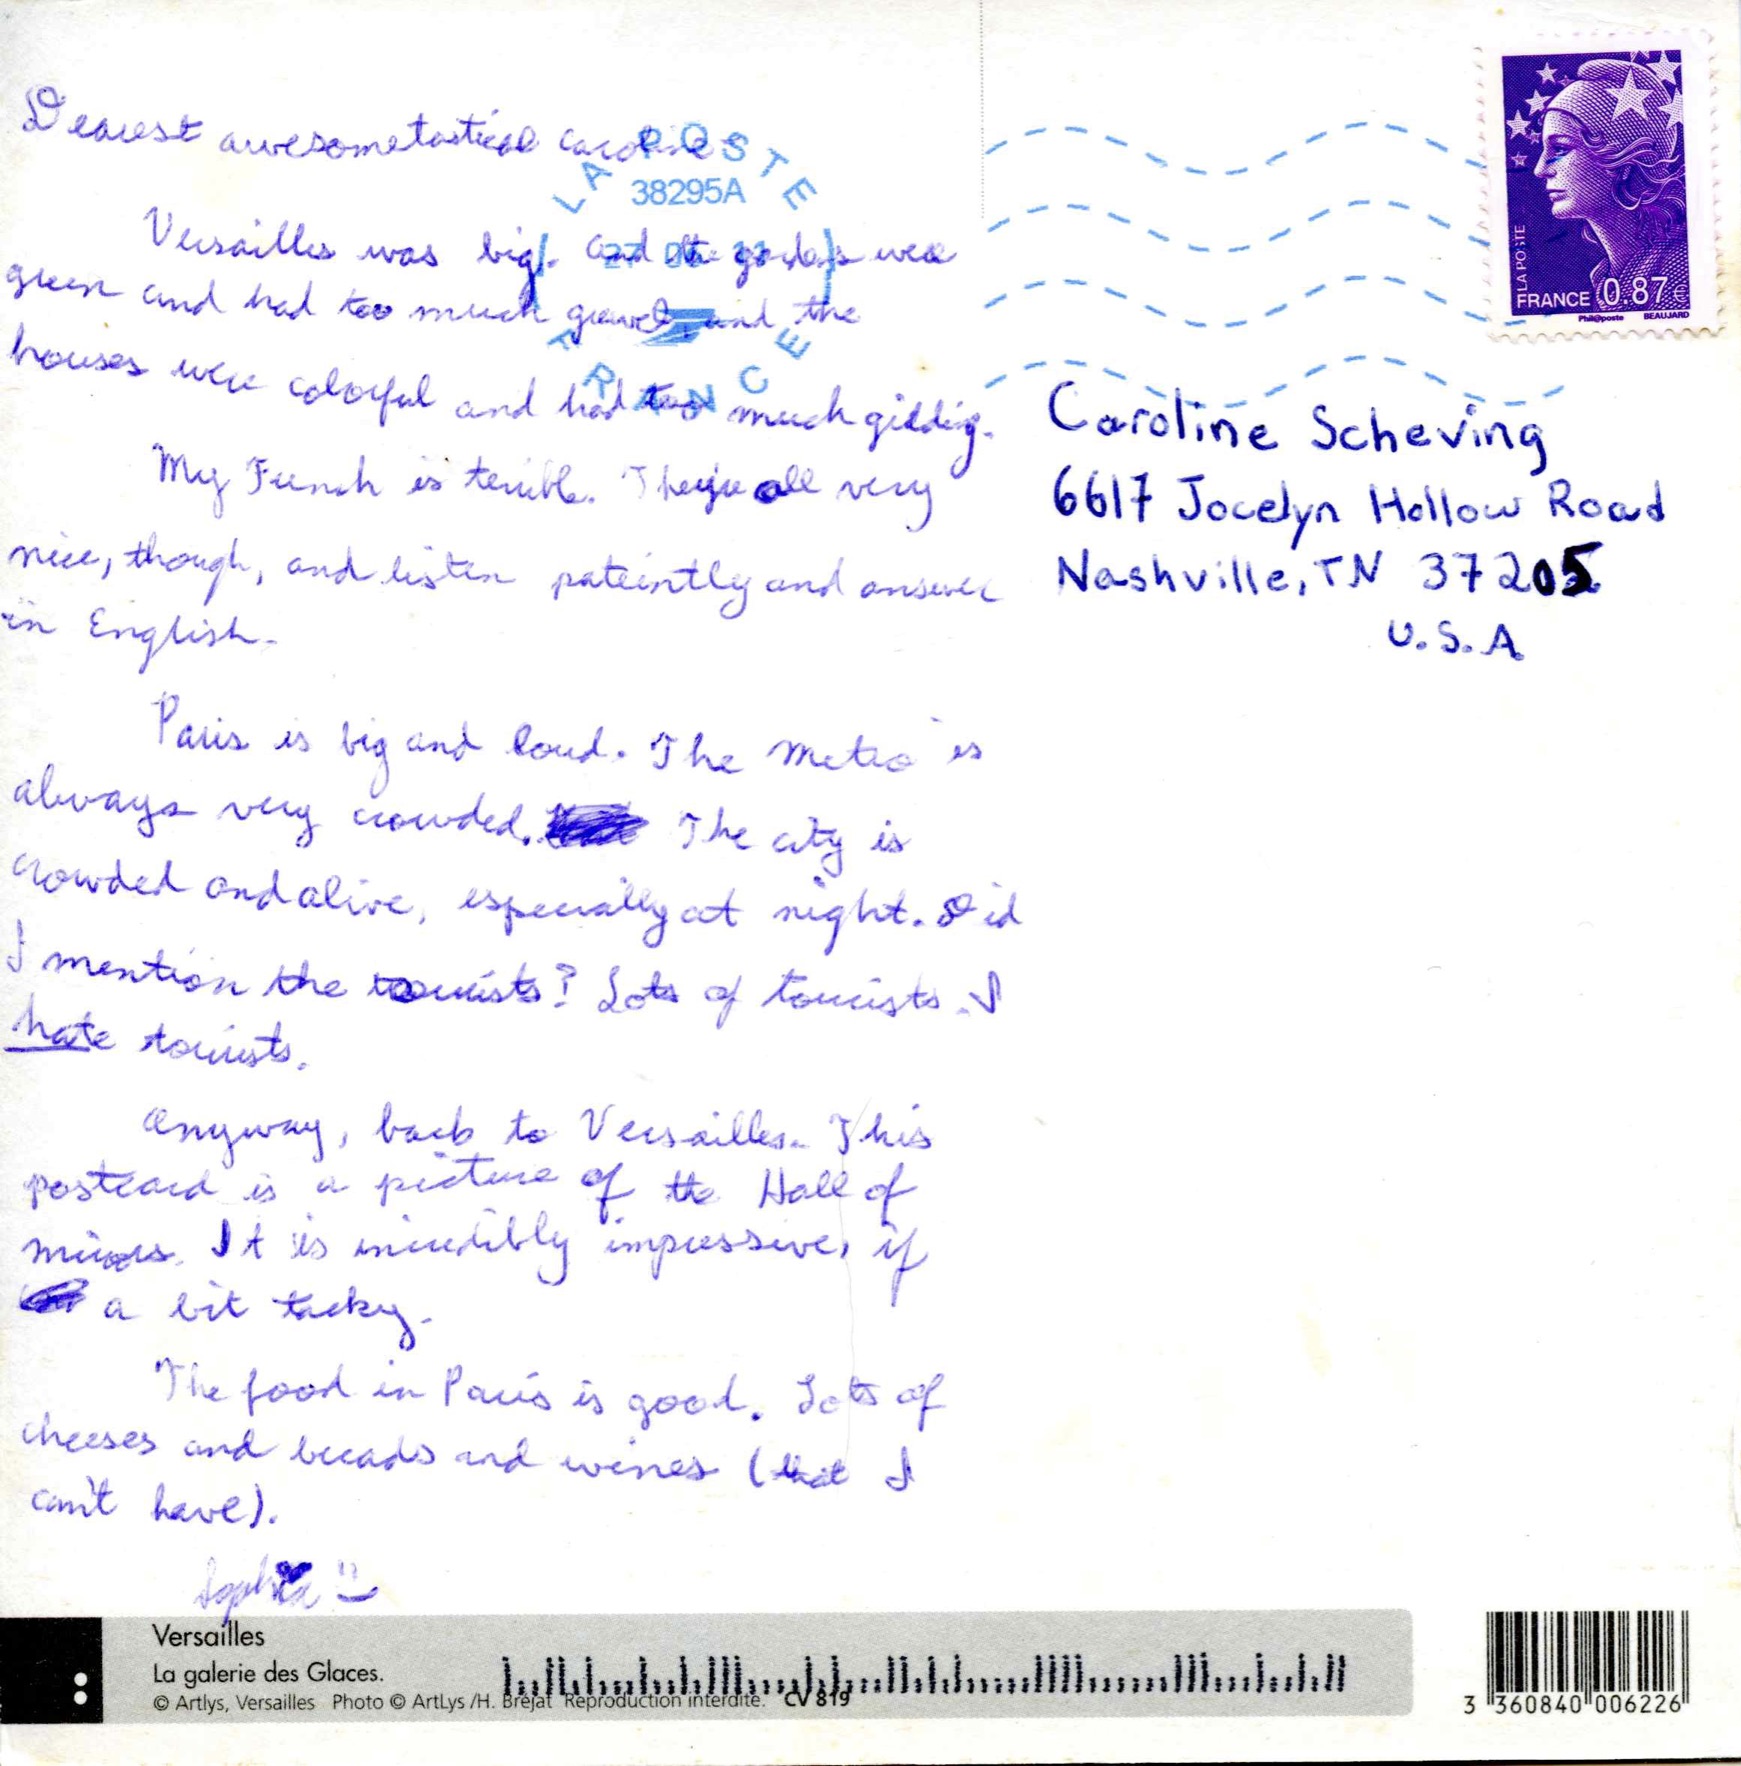 Dearest awesometastical Caroline
Versailles was big. And the gardens were
green and had too much gravel, and the
houses were colorful and had too much gilding.
My French is terrible. They're all very
nice, though, and listen pateintly and answer
in English.
Paris is big and loud. The Metro is
always very crowded. The city is
crowded and alive, especially at night. Did
I mention the tourists? Lots of tourists. I
hate tourists.
Anyway, back to Versailles. This
postcard is a picture of the Hall of
mirrors. It is incredibly impressive, if
a bit tacky.
The food in Paris is good. Lots of
cheeses and breads and wines (that I
can't have).
Sophia
LA POSTE
38295A
FRANCE
LA POSTE
FRANCE 0.87€
Phil@poste BEAUJARD
Caroline Scheving
6617 Jocelyn Hollow Road
Nashville, TN 37205
U.S.A
Versailles
La galerie des Glaces.
© Artlys, Versailles Photo © ArtLys /H. Bréjat Reproduction interdite. CV 819
3 360840 006226